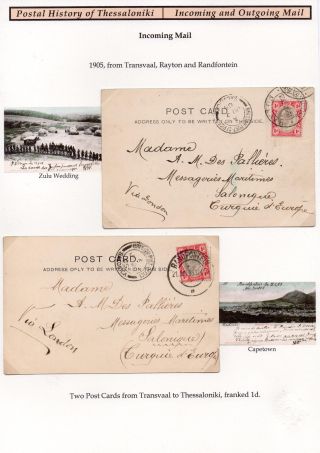 Postal History of Thessaloniki | Incoming and Outgoing Mail
Incoming Mail
1905, from Transvaal, Rayton and Randfontein
Zulu Wedding
POST CARD.
ADDRESS ONLY TO BE WRITTEN ON THIS SIDE.
Madame
A. M. Des Pallières
Messageries Maritimes
Salonique
Turquie d'Europe
Via London
POST CARD.
ADDRESS ONLY TO BE WRITTEN ON THIS SIDE.
Madame
A. M. Des Pallières
Messageries Maritimes
Salonique
Turquie d'Europe
Via London
Capetown
Two Post Cards from Transvaal to Thessaloniki, franked 1d.